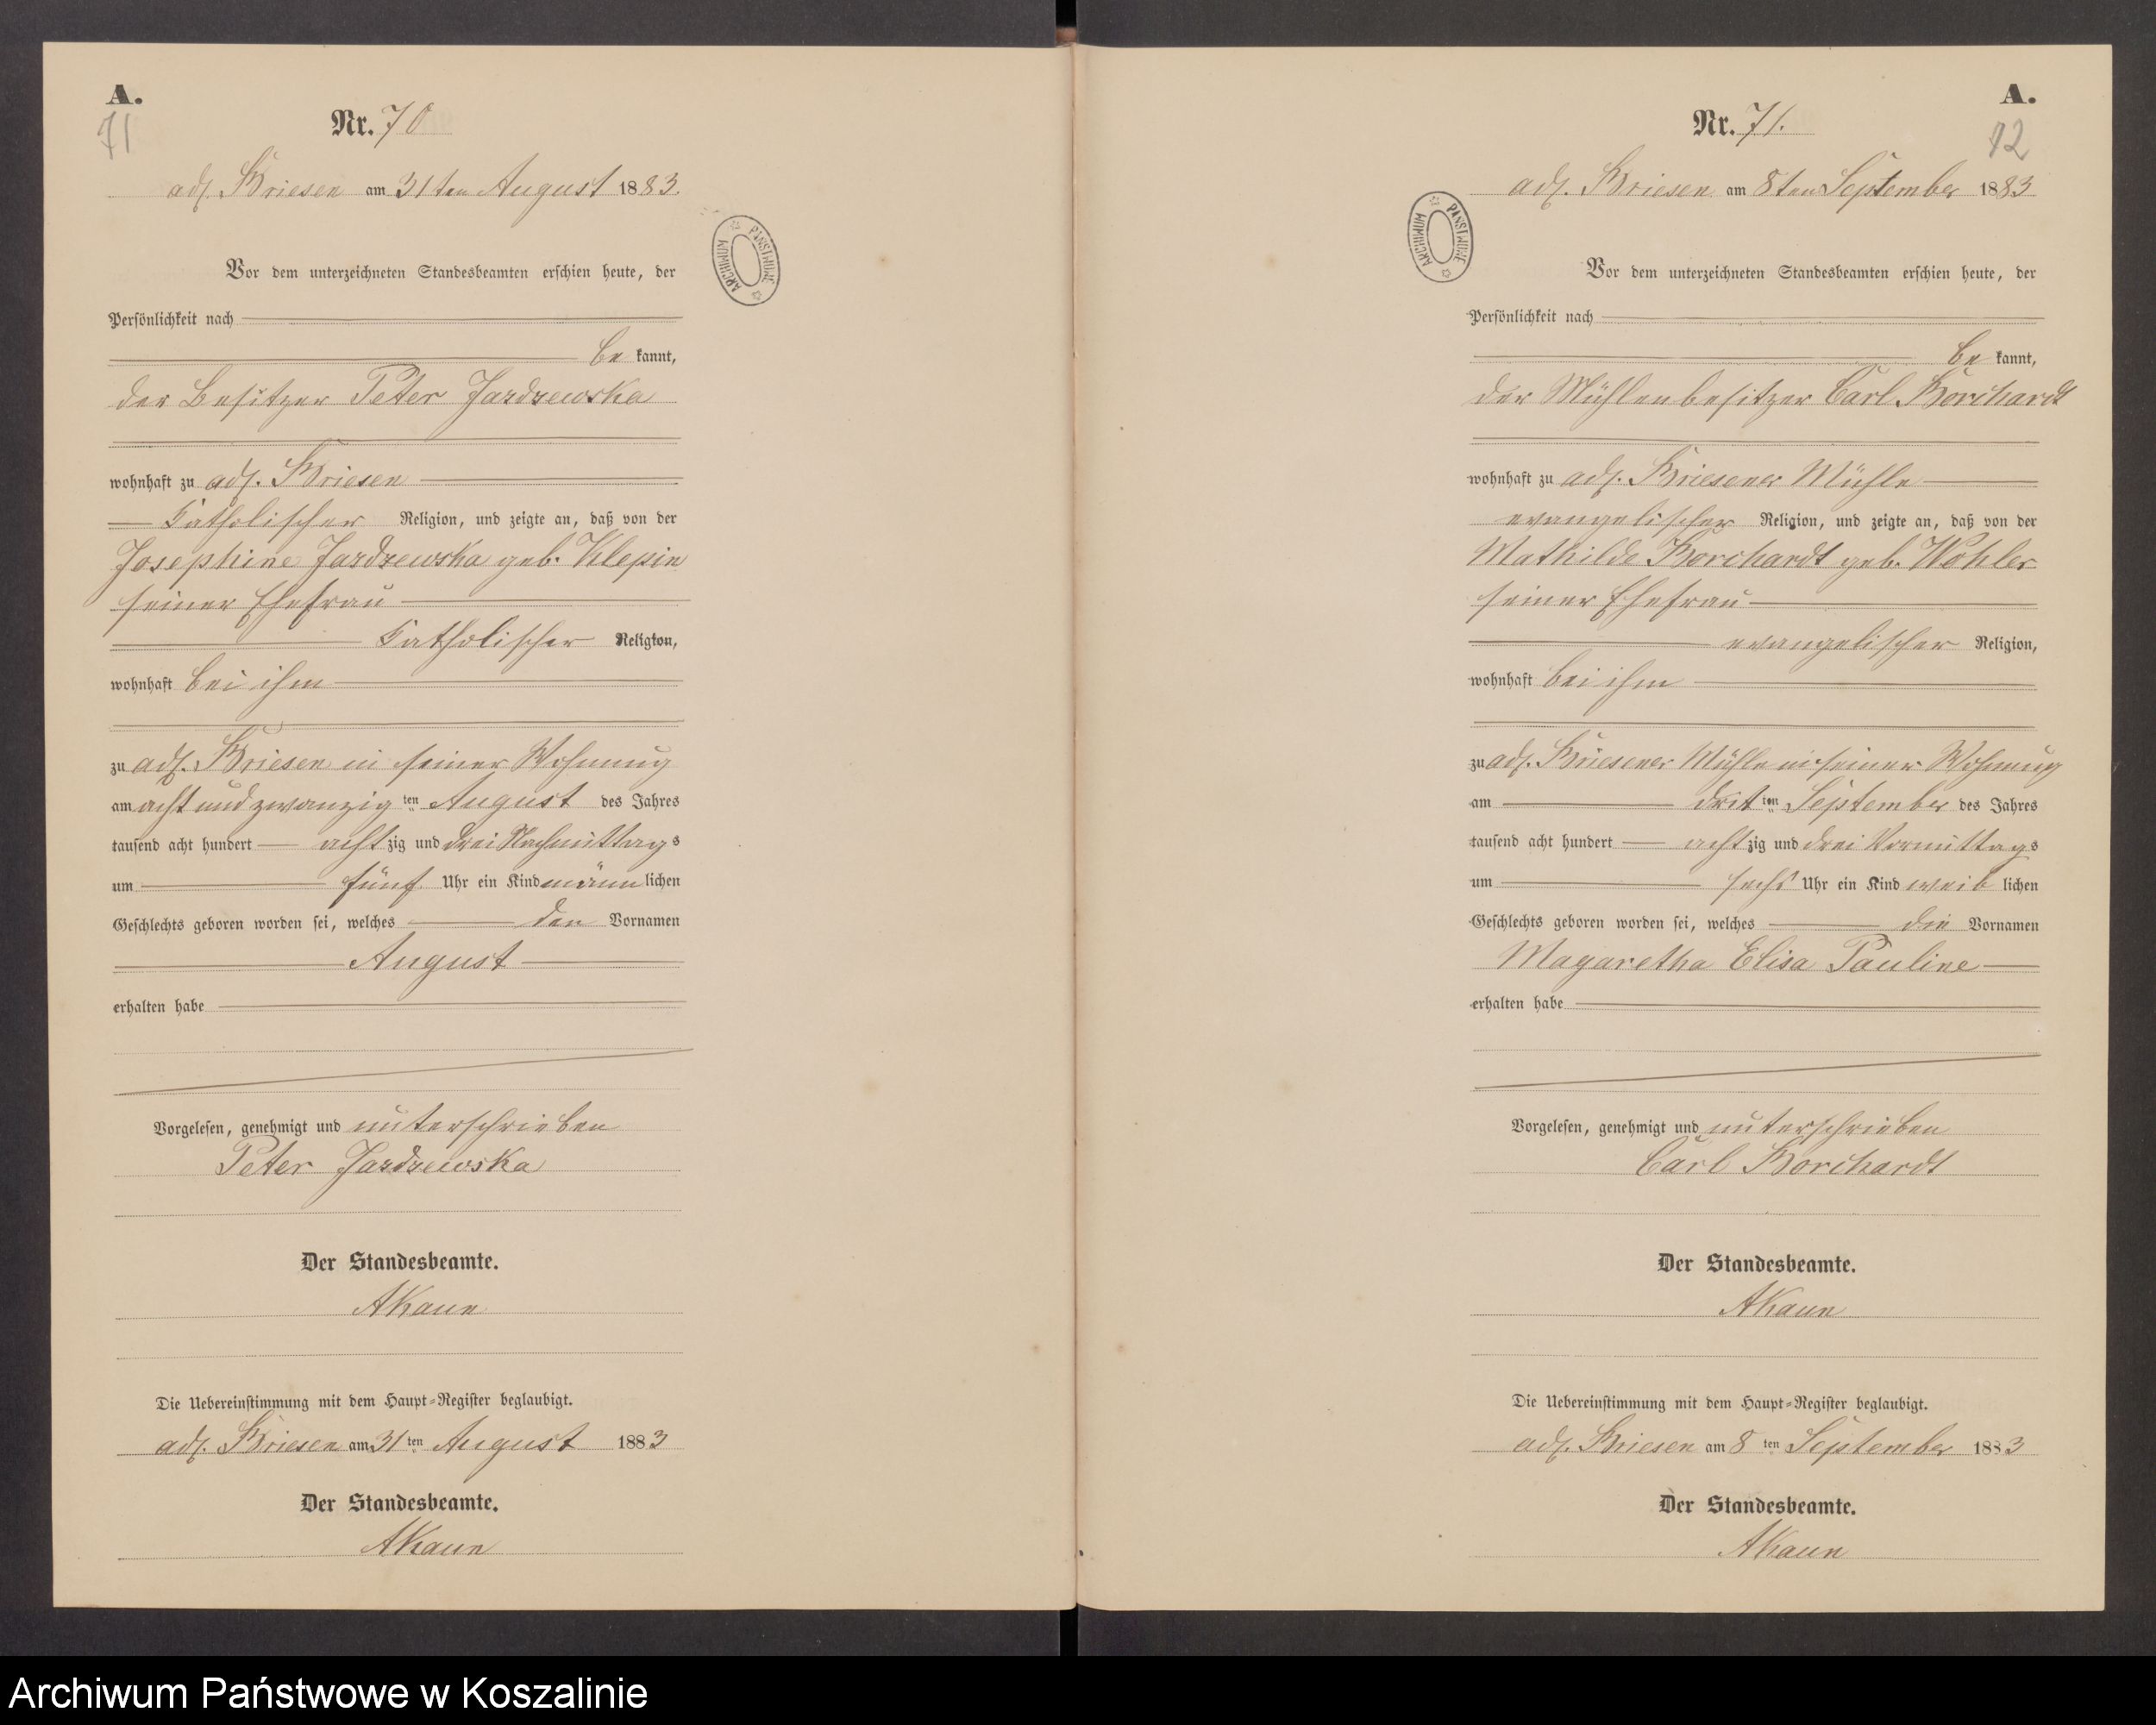 A.
71
Nr. 70
adl. Briesen am 31ten August 1883.
Vor dem unterzeichneten Standesbeamten erschien heute, der
Persönlichkeit nach
be kannt,
der Besitzer Peter Jazdzewska
wohnhaft zu adl. Briesen
katholischer Religion, und zeigte an, daß von der
Josephine Jazdzewska geb. Klepin
seiner Ehefrau
katholischer Religion,
wohnhaft bei ihm
zu adl. Briesen in seiner Wohnung
am acht und zwanzig ten August des Jahres
tausend acht hundert acht zig und drei Nachmittags
um fünf Uhr ein Kind männ lichen
Geschlechts geboren worden sei, welches den Vornamen
August
erhalten habe
Vorgelesen, genehmigt und unterschrieben
Peter Jazdzewska
Der Standesbeamte.
AKaun
Die Uebereinstimmung mit dem Haupt=Register beglaubigt.
adl. Briesen am 31 ten August 1883
Der Standesbeamte.
AKaun
ARCHIWUM PAŃSTWOWE
A.
72
Nr. 71.
adl. Briesen am 8ten September 1883
Vor dem unterzeichneten Standesbeamten erschien heute, der
Persönlichkeit nach
be kannt,
der Mühlenbesitzer Carl Borchardt
wohnhaft zu adl. Briesener Mühle
evangelischer Religion, und zeigte an, daß von der
Mathilde Borchardt geb. Wohler
seiner Ehefrau
evangelischer Religion,
wohnhaft bei ihm
zu adl. Briesener Mühle in seiner Wohnung
am drit ten September des Jahres
tausend acht hundert acht zig und drei Vormittags
um sechs Uhr ein Kind weib lichen
Geschlechts geboren worden sei, welches die Vornamen
Magaretha Elisa Pauline
erhalten habe
Vorgelesen, genehmigt und unterschrieben
Carl Borchardt
Der Standesbeamte.
AKaun
Die Uebereinstimmung mit dem Haupt=Register beglaubigt.
adl. Briesen am 8 ten September 1883
Der Standesbeamte.
AKaun
ARCHIWUM PAŃSTWOWE
Archiwum Państwowe w Koszalinie